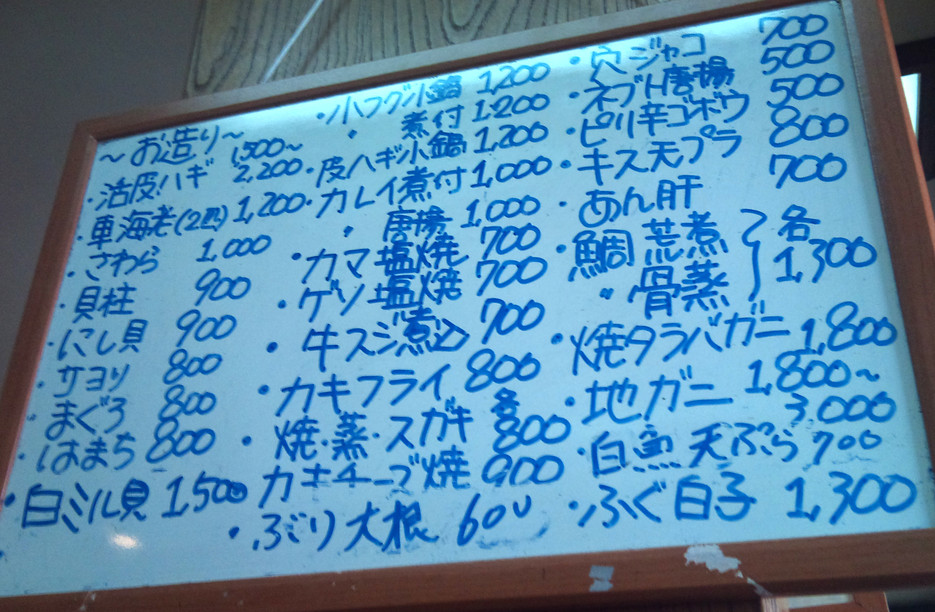 ～お造り～
1,500～
・活皮ハギ 2,200
・車海老(2匹) 1,200
・さわら 1,000
・貝柱 900
・にし貝 900
・サヨリ 800
・まぐろ 800
・はまち 800
・白ミル貝 1,500
・小フグ小鍋 1,200
〃 煮付 1,200
・皮ハギ小鍋 1,200
・カレイ煮付 1,000
〃 唐揚 1,000
・カマ塩焼 700
・ゲソ塩焼 700
・牛スジ煮込 700
・カキフライ 800
・焼・蒸・スガキ 各800
カキチーズ焼 900
・ぶり大根 600
・穴ジャコ 700
・ネブト唐揚 500
・ピリ辛ゴボウ 500
・キス天プラ 800
・あん肝 700
・鯛荒煮 各
〃 骨蒸 1,300
・焼タラバガニ 1,800
・地ガニ 1,800～
3,000
・白魚天ぷら 700
・ふぐ白子 1,300